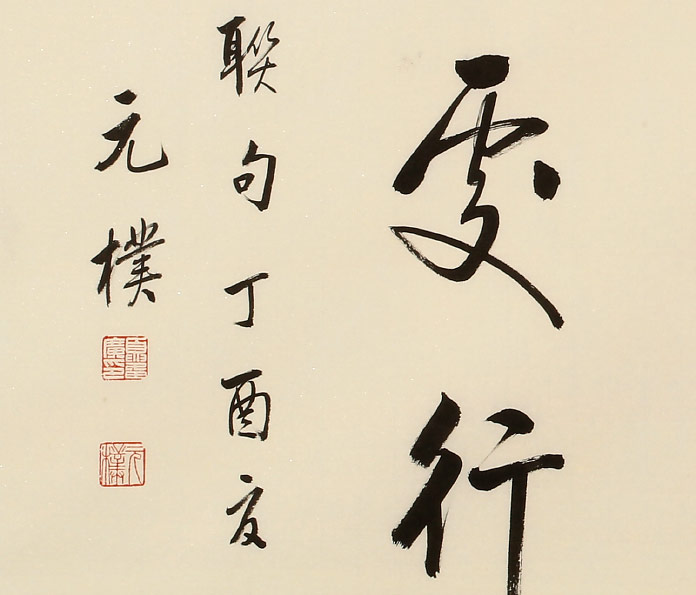 處行
聯句丁酉夏
元樸
元樸